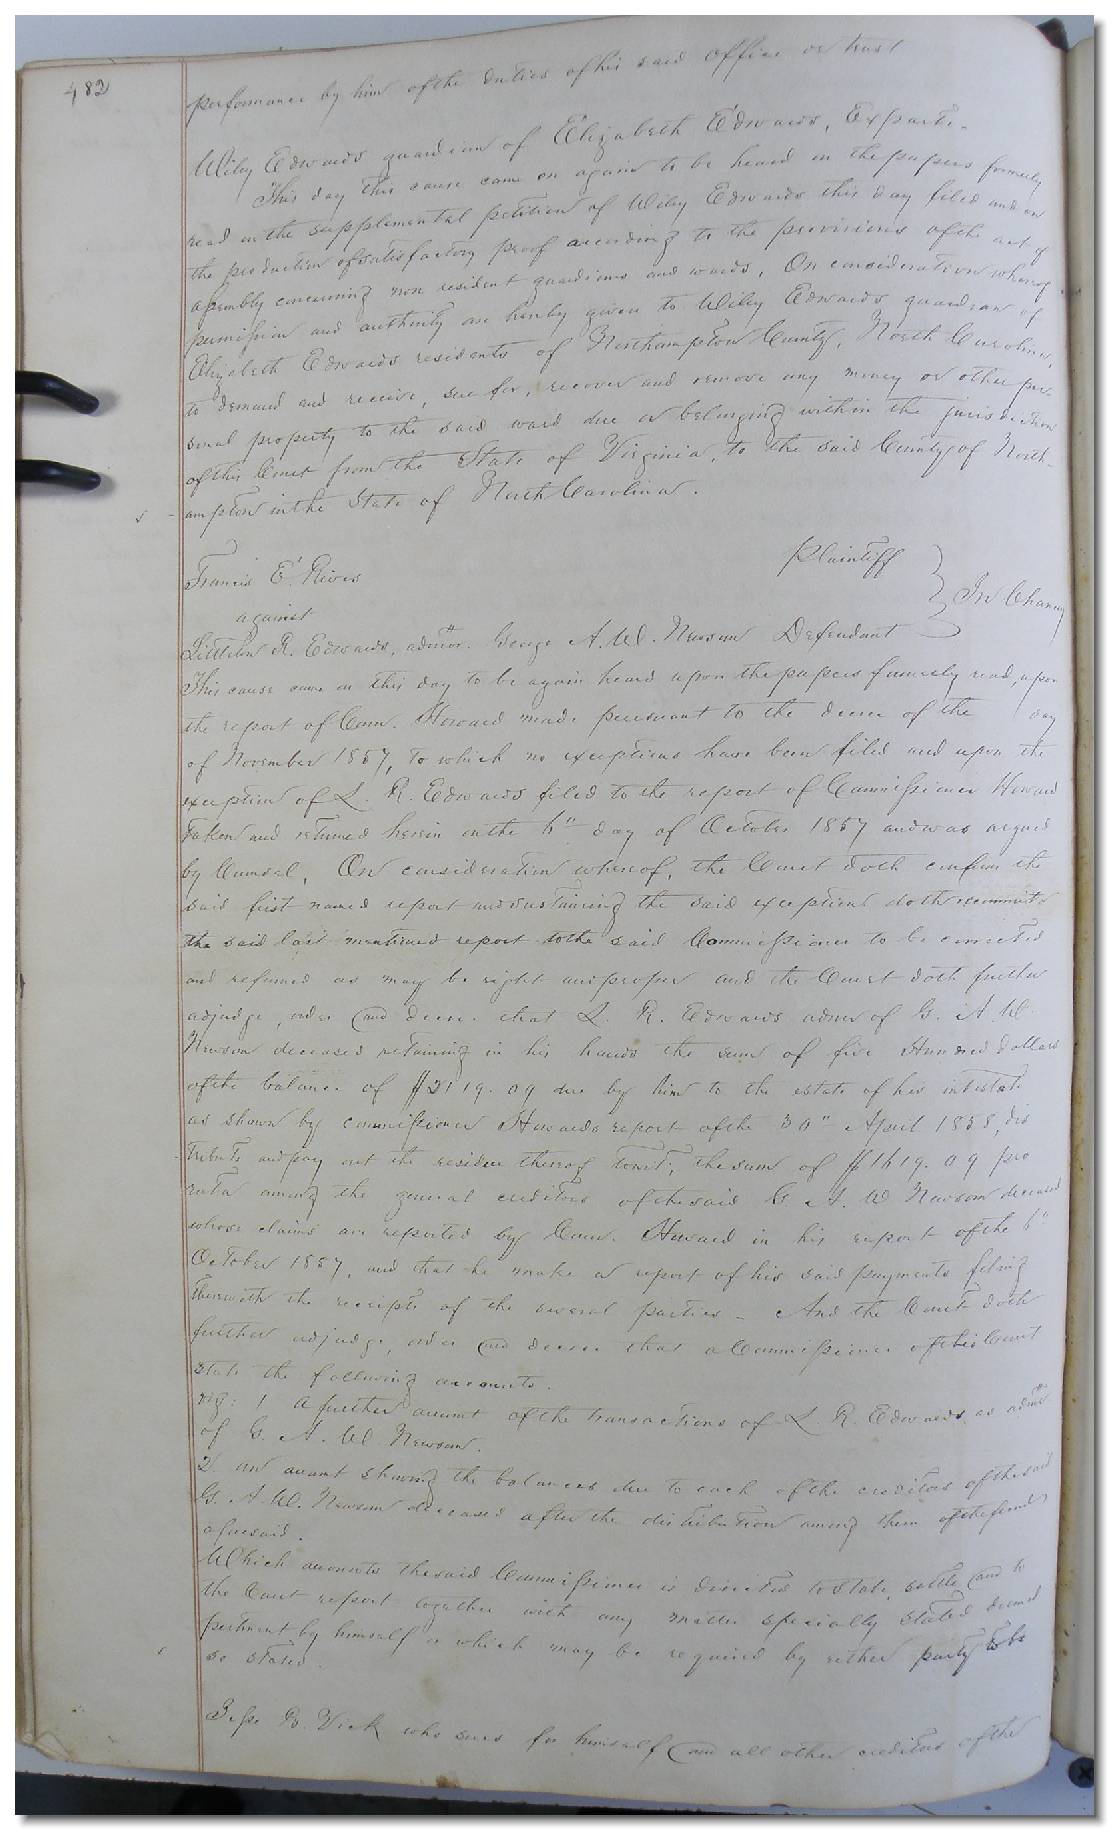 482
performance by him of the duties of his said office or trust
Wiley Edwards guardian of Elizabeth Edwards, Exparte.
This day this cause came on again to be heard on the papers formerly
read on the supplemental petition of Wiley Edwards this day filed and on
the production of satisfactory proof according to the provisions of the act of
assembly concerning non resident guardians and wards, On consideration whereof
permission and authority are hereby given to Wiley Edwards guardian of
Elizabeth Edwards residents of Northampton County, North Carolina,
to demand and receive, sue for, recover and remove any money or other per-
sonal property to the said ward due or belonging within the jurisdiction
of this Court from the State of Virginia, to the said County of North-
ampton in the State of North Carolina.
Francis E. Rives Plaintiff
against In Chancy
Littleton R. Edwards, admor. George A. W. Newsom Defendant
This cause came on this day to be again heard upon the papers formerly read, upon
the report of Com. Howard made pursuant to the decree of the day
of November 1857, to which no exceptions have been filed and upon the
exception of L. R. Edwards filed to the report of Commissioner Howard
taken and returned herein on the 6" day of October 1857 and was argued
by Counsel, On consideration whereof, the Court doth confirm the
said first named report and sustaining the said exception doth recommit
the said last mentioned report to the said Commissioner to be corrected
and reformed as may be right and proper and the Court doth further
adjudge, order and decree that L. R. Edwards admor of G. A. W.
Newsom deceased retaining in his hands the sum of five Hundred dollars
of the balance of $2119.09 due by him to the estate of his intestate
as shown by commissioner Howards report of the 30" April 1858, dis
tribute and pay out the residue thereof towit; the sum of $1619.09 pro
rata among the general creditors of the said G. A. W Newsom deceased
whose claims are reported by Com. Howard in his report of the 6"
October 1857, and that he make a report of his said payments filing
therewith the receipts of the several parties - And the Court doth
further adjudge, order and decree that a Commissioner of this Court
state the following accounts.
viz: 1 A further account of the transactions of L. R. Edwards as admor
of G. A. W. Newsom.
2. an account showing the balances due to each of the creditors of the said
G. A. W. Newsom deceased after the distribution among them of the fund
aforesaid.
Which accounts the said Commissioner is directed to state, settle and to
the Court report together with any matter specially stated deemed
pertinent by himself or which may be required by either party to be
so stated.
Jesse B. Vick who sues for himself and all other creditors of the